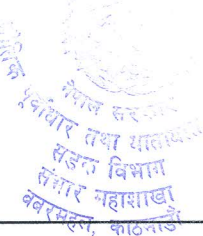 नेपाल सरकार
भौतिक पूर्वाधार तथा यातायात
सडक विभाग
संभार महाशाखा
बबरमहल, काठमाडौं